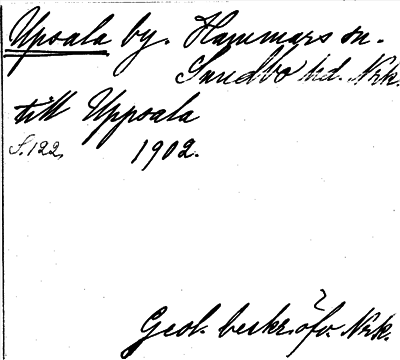 Upsala by. Hammars sn.
Sundbo hd. Nrk.
till Uppsala
S. 122. 1902.
Geol. beskr. öfv. Nrk.